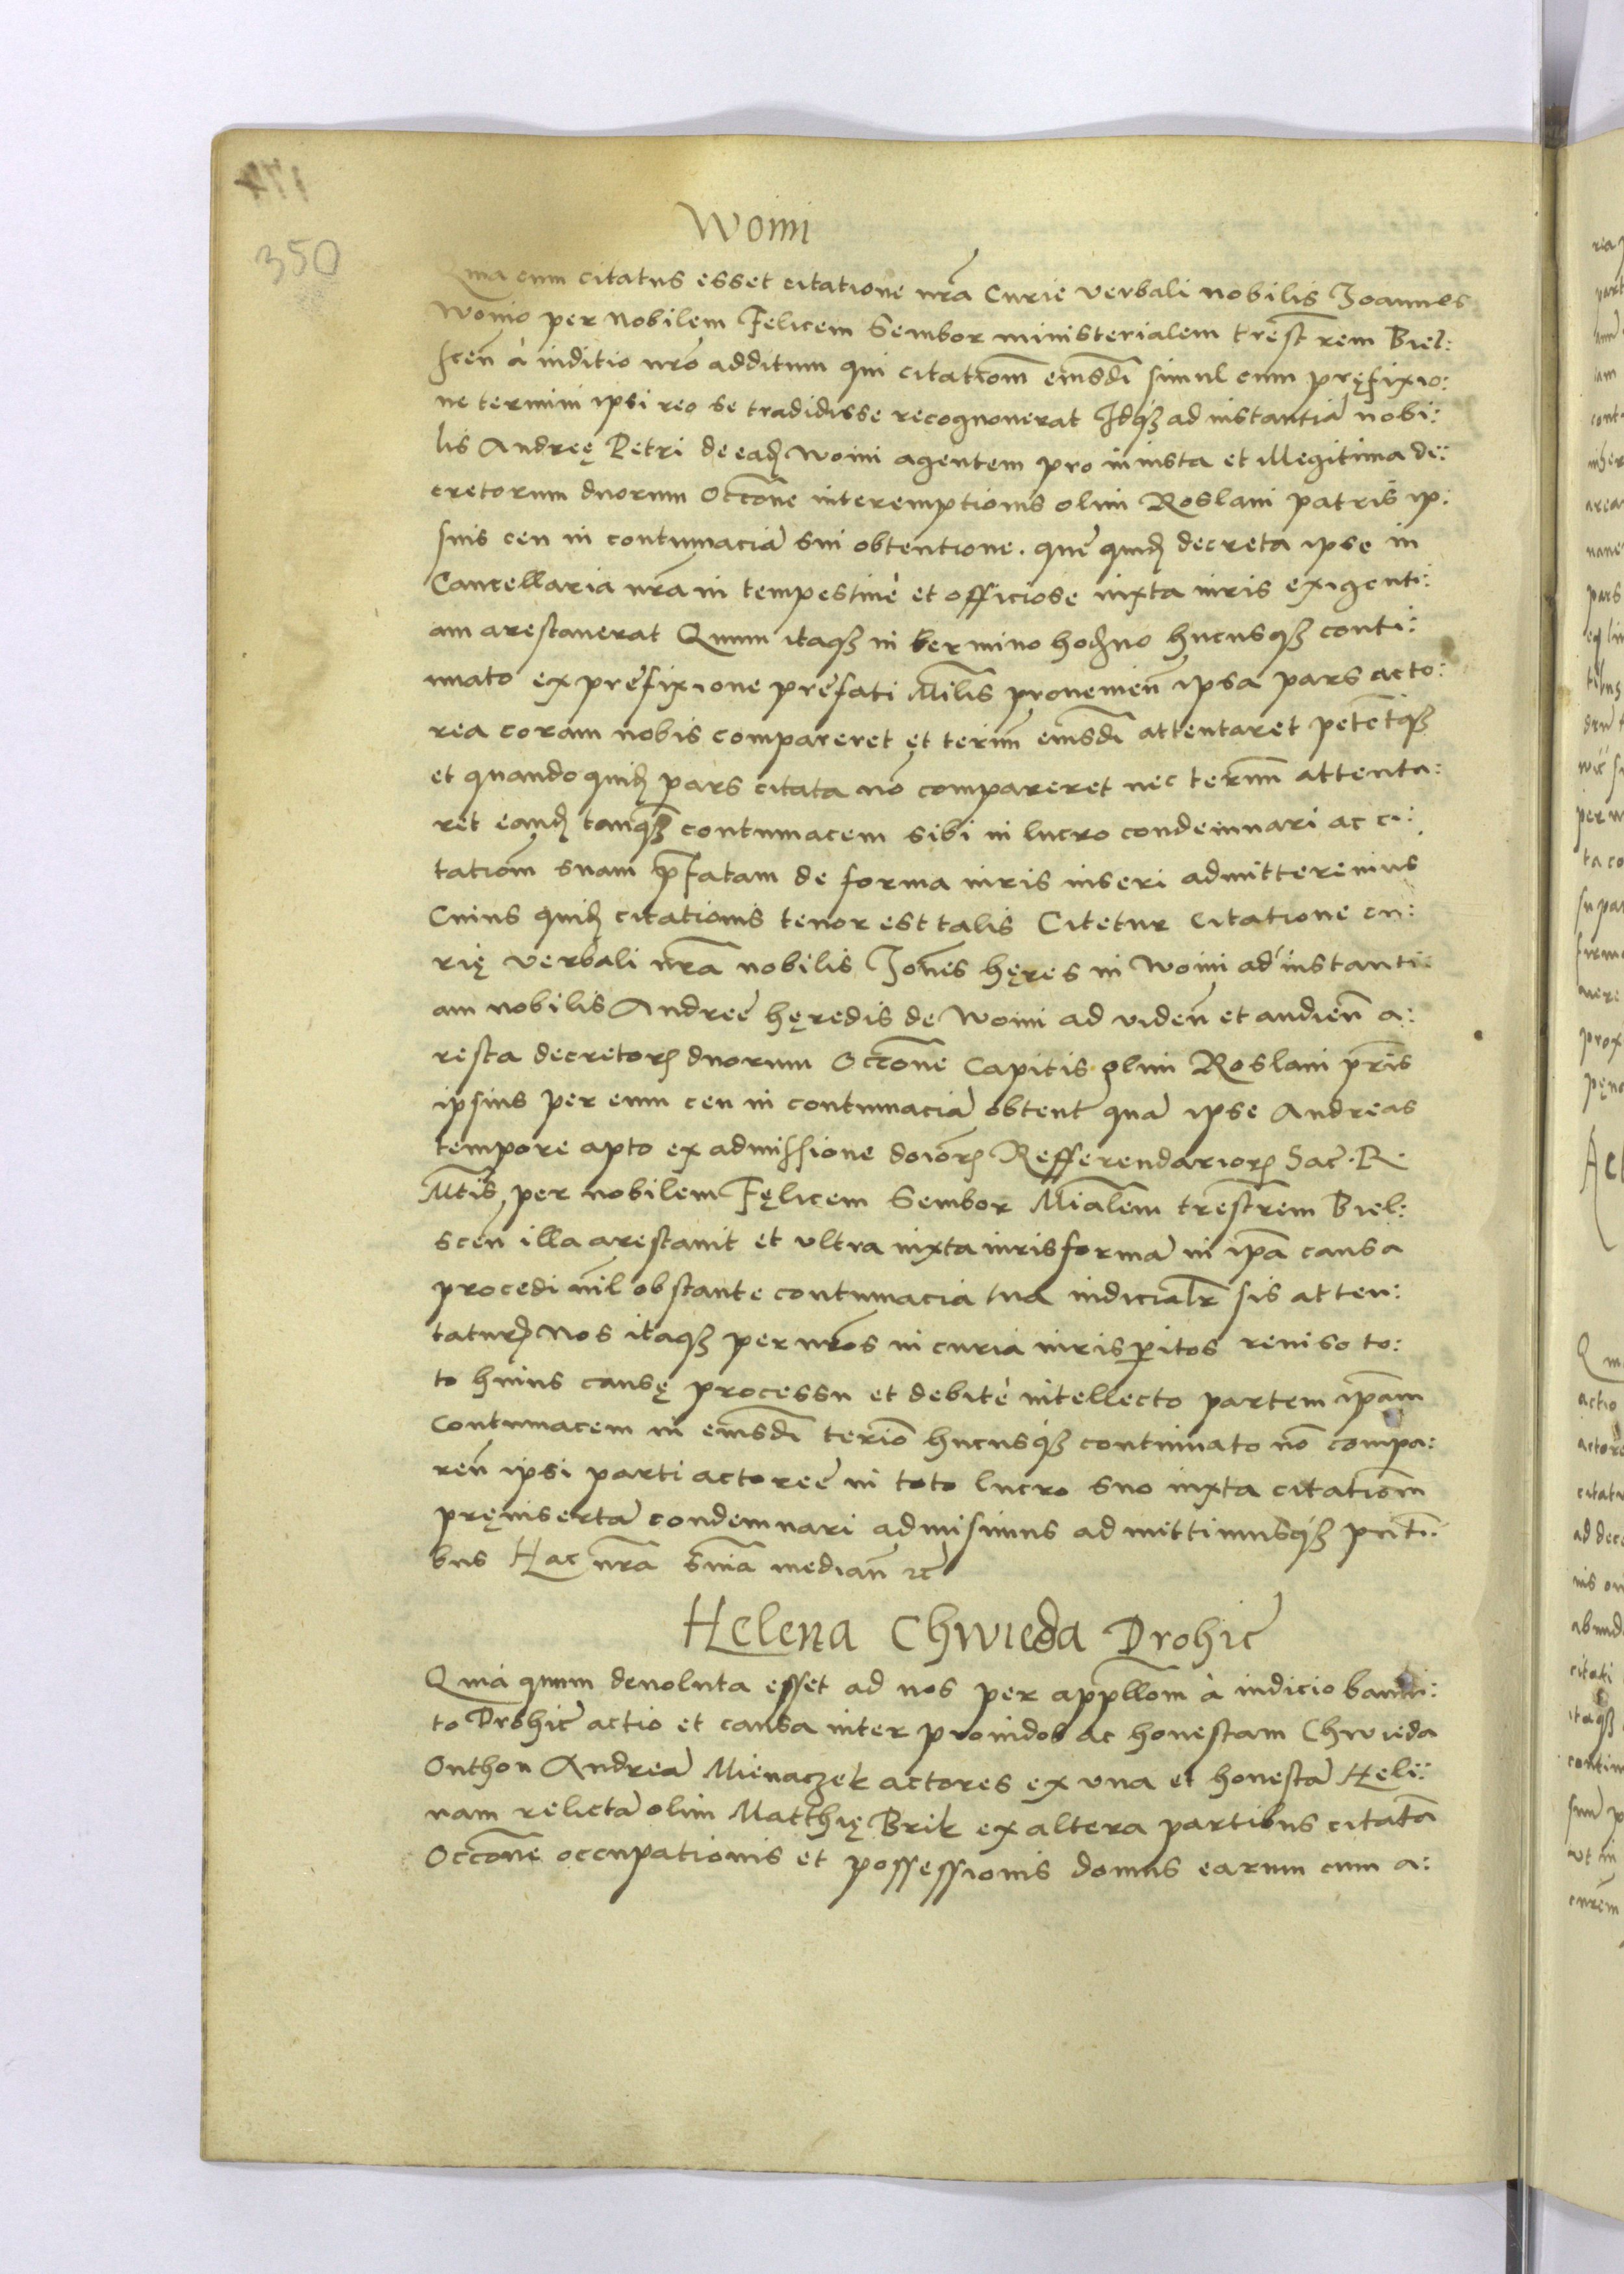 350
Woini
Quia cum citatus esset citatione nrã Curie verbali nobilis Joannes
Woino per Nobilem Felicem Sembor ministerialem trestrem Biel:
scen̄ à inditio nr̄o additum qui citatiom̄ eiusdē simul cum pręfixio:
ne termini ipsi reo se tradidisse recognouerat Idq₃ ad instantiā nobi:
lis Andreę Petri de ead₃ Woini agentem pro iniusta et illegitima de:
cretorum duorum occōne interemptionis olim Roslani patris ip:
sius ceu in contumaciā sui obtentione. que quid₃ decreta ipse in
Cancellaria nrã in tempestiuè et officiose iuxta iuris exigenti:
am arestauerat Quum itaq₃ in termino hod₃no hucusq₃ conti:
nuato ex prefixione prefati Mīlis prouenien̄ ipsa pars acto:
rea coram nobis compareret et terim̄ eiusdē attentaret petētq₃
et quando quid₃ pars citata nō compareret nec termin̄ attenta:
ret eand₃ tanq₃ contumacem sibi in lucro condemnari ac ci:
tatiom̄ suam p̄fatam de forma iuris inseri admitteremus
Cuius quid₃ citationis tenor est talis Citetur Citatione cu:
rię verbali nrã nobilis Joñes hęres in Woini ad instanti:
am nobilis Andree hęredis de Woini ad viden̄ et audien̄ a:
resta decretor₃ duorum occōne Capitis olim Roslani pr̄is
ipsius per eum ceu in contumaciā obtent quā ipse Andreas
tempore apto ex admissione doior₃ Refferendarior₃ Sac̄. R.
Mtis, per nobilem Fęlicem Sembor Mialem̄ trestrem̄ Biel:
scen̄ illa arestauit et vltra iuxta iuris formā in ip̄a causa
procedi nil̄ obstante contumacia tua iudicialr̄ sis atten:
tatur₃ Nos itaq₃ per nr̄os in curia iuris p̄itos reuiso to:
to huius causę processu et debitè intellecto partem ip̄am
Contumacem in eiusdē terio hucusq₃ continuato nō compa:
ren̄ ipsi parti actoreę in toto lucro suo iuxta citatiom̄
pręinsertā condemnari admisimus admittimusq₃ pn̄ti:
bus Hac nrã sn̄ia median̄ ꝛc̄
Helena Chwieda Drohic̄
Quia quum deuoluta esset ad nos per appellom̄ à iudicio banni:
to Drohic̄ actio et causa inter prouidos ac honestam Chwieda
Onthon Andreā Mienaczek actores ex vna et honestā Heli:
nam relictā olim Matthię Brik ex altera partibus citatā
Occōne occupationis et possessionis domus earum cum a: